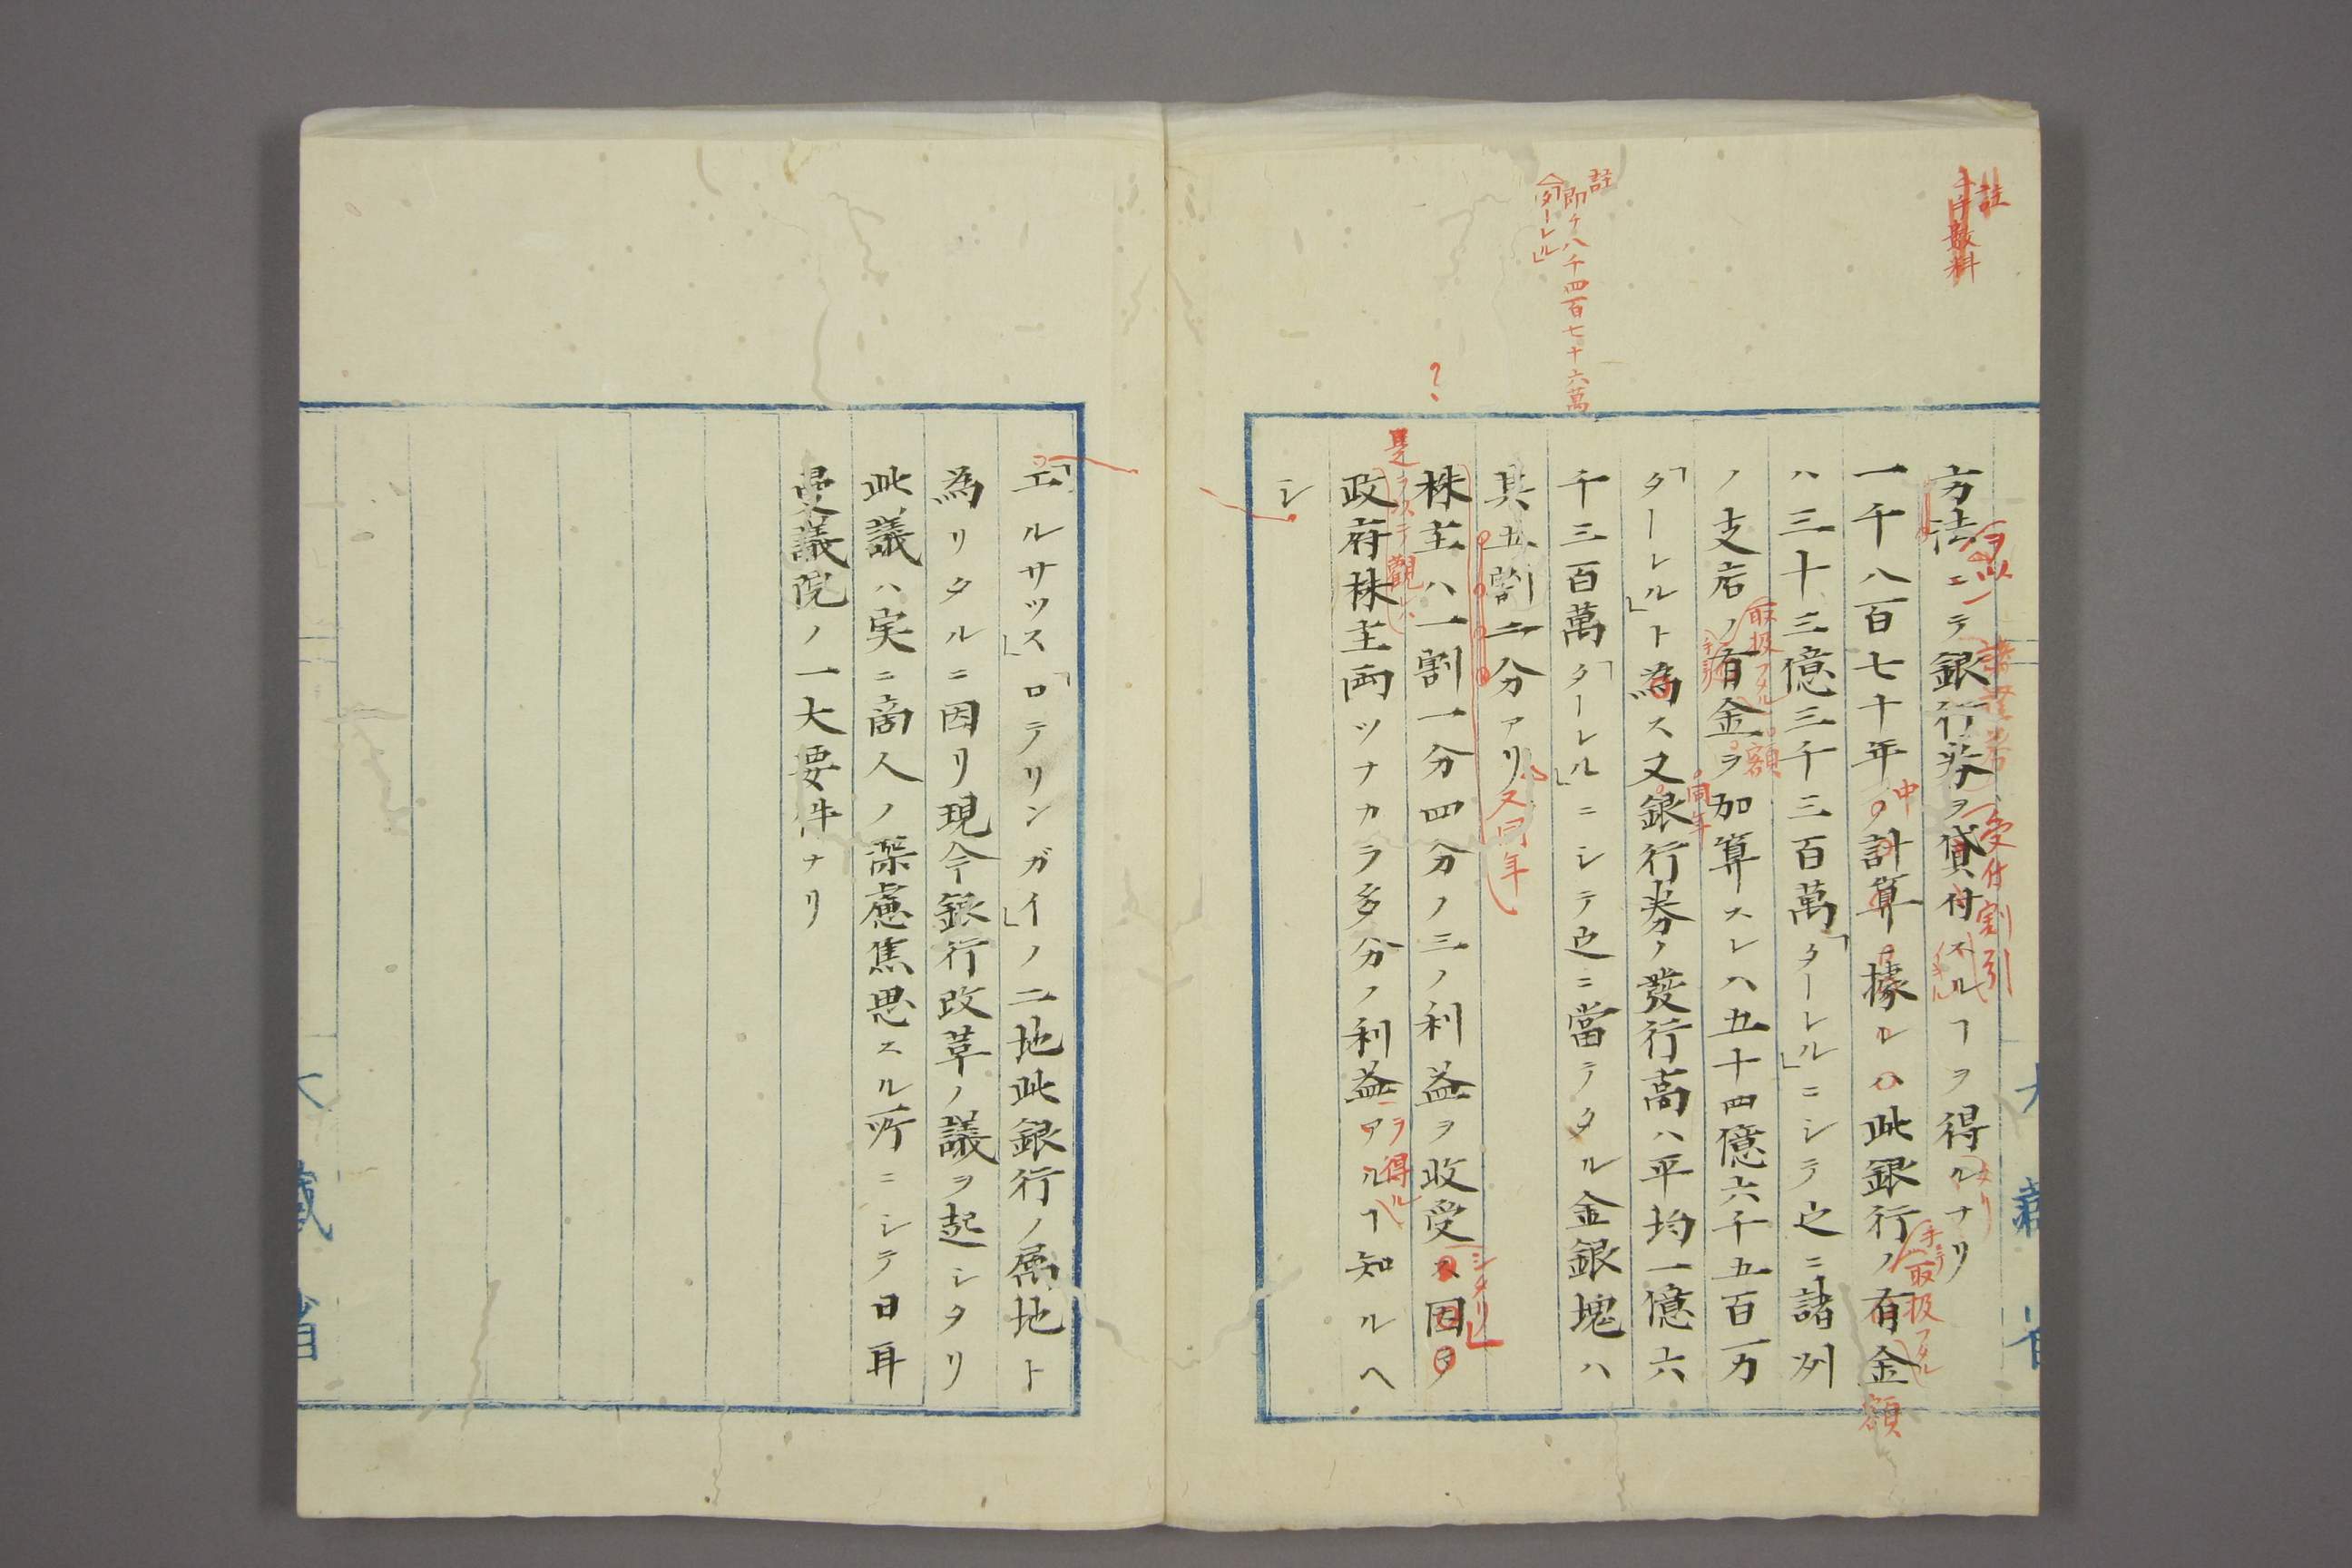 註
方法ニテ銀行券ヲ貸付スルヿヲ得ルナリ
ヲ以
受付割引
一千八百七十年ノ計算ニ據ルハ此銀行ノ有金
中
取扱フタル
額
ハ三十三億三千三百萬「ターレル」ニシテ之ニ諸州
ノ支店ノ有金ヲ加算スレハ五十四億六千五百万
取扱フタル
額
「ターレル」ト為ス又銀行券ノ發行高ハ平均一億六
同年
註
即チ八千四百七十六萬
「ターレル」
千三百萬「ターレル」ニシテ之ニ當テタル金銀塊ハ
其五割二分アリ
又同年
?
株主ハ一割一分四分ノ三ノ利益ヲ收受ス因テ
シタリ
是ヲ以テ觀レハ
政府株主両ツナカラ多分ノ利益アルヿ知ルヘ
ヲ得ル
シ
「エルサッス」「ロテリンガイ」ノ二地此銀行ノ属地ト
為リタルニ因リ現今銀行改革ノ議ヲ起シタリ
此議ハ実ニ商人ノ深慮焦思スル所ニシテ日耳
曼議院ノ一大要件ナリ
大藏省